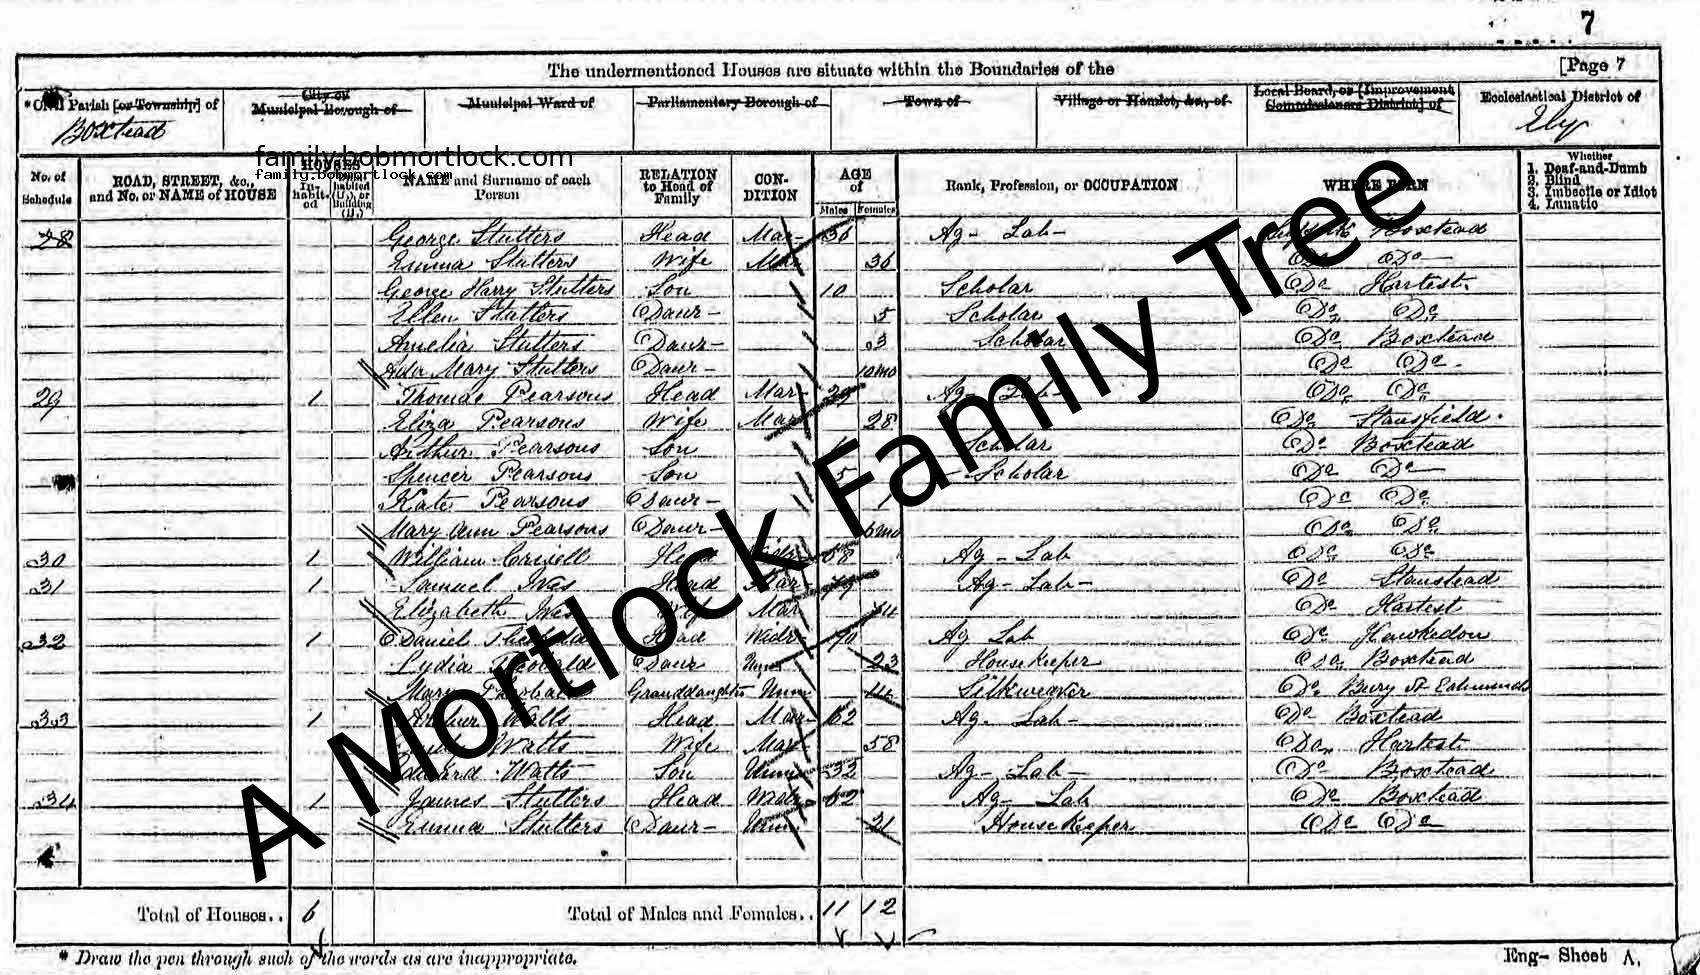 7
The undermentioned Houses are situate within the Boundaries of the [Page 7
Parish [or Township] of City or Municipal Borough of Municipal Ward of Parliamentary Borough of Town of Village or Hamlet, &c., of Local Board, or [Improvement Commissioners District] of Ecclesiastical District of
Boxtead Ely
family.bobmortlock.com
family.bobmortlock.com
No. of Schedule ROAD, STREET, &c., and No. or NAME of HOUSE HOUSES In-habit-ed NAME and Surname of each Person RELATION to Head of Family CON-DITION AGE of Males Females Rank, Profession, or OCCUPATION WHERE BORN Whether 1. Deaf-and-Dumb 2. Blind 3. Imbecile or Idiot 4. Lunatic
28 George Stutters Head Mar- 36 Ag- Lab- Boxtead
Emma Stutters Wife Mar 36 Do Do
George Harry Stutters Son 10 Scholar Do Hartest
Ellen Stutters Daur- 5 Scholar Do Do
Amelia Stutters Daur- 3 Scholar Do Boxtead
Ada Mary Stutters Daur- 10mo Do Do
29 1 Thomas Pearsons Head Mar- 29 Ag- Lab- Do Do
Eliza Pearsons Wife Mar 28 Do Stansfield
Arthur Pearsons Son Scholar Do Boxtead
Spencer Pearsons Son 5 Scholar Do Do
Kate Pearsons Daur- Do Do
Mary Ann Pearsons Daur- 6mo Do Do
30 1 William Head Widr 68 Ag- Lab Do Do
31 1 Samuel Ives Head Mar- Ag- Lab- Do Stanstead
Elizabeth Ives Wife Mar Do Hartest
32 1 Daniel Head Widr- 70 Ag Lab Do Hawkedon
Lydia Daur Unm 23 Housekeeper Do Boxtead
Mary Granddaughter Unm 14 Silkweaver Do Bury St Edmunds
33 1 Arthur Watts Head Mar- 62 Ag- Lab- Do Boxtead
Watts Wife Mar- 58 Do Hartest
Edward Watts Son Unm 32 Ag- Lab- Do Boxtead
34 1 James Stutters Head Widr 62 Ag- Lab Do Boxtead
Emma Stutters Daur- Unm 21 Housekeeper Do Do
Total of Houses.. 6 Total of Males and Females.. 11 12
* Draw the pen through such of the words as are inappropriate. Eng- Sheet A.
A Mortlock Family Tree